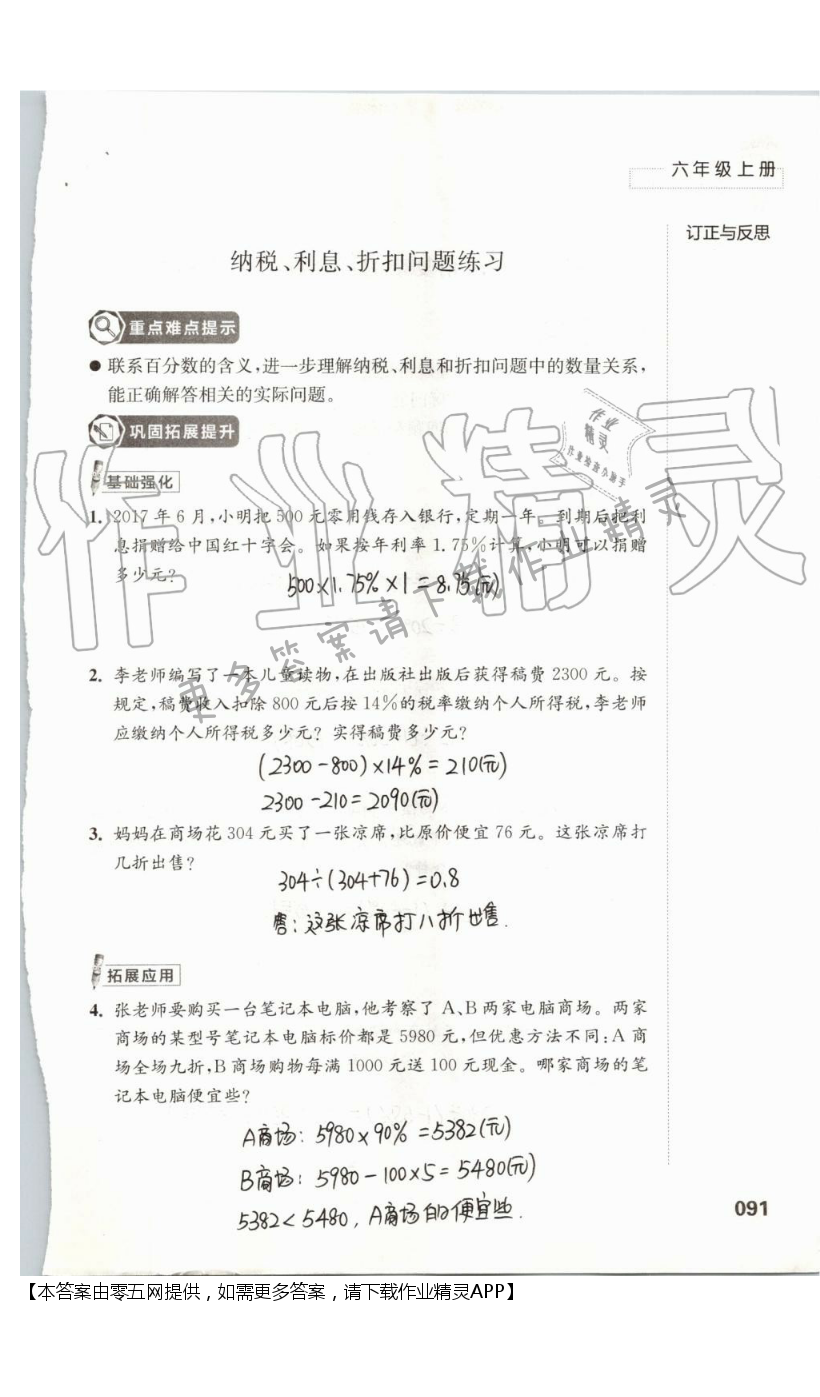 六年级上册
订正与反思
纳税、利息、折扣问题练习
重点难点提示
●联系百分数的含义,进一步理解纳税、利息和折扣问题中的数量关系,
能正确解答相关的实际问题。
巩固拓展提升
基础强化
1. 2017年6月,小明把500元零用钱存入银行,定期一年,到期后把利
息捐赠给中国红十字会。如果按年利率1.75%计算,小明可以捐赠
多少元?
500×1.75%×1=8.75(元)
2. 李老师编写了一本儿童读物,在出版社出版后获得稿费2300元。按
规定,稿费收入扣除800元后按14%的税率缴纳个人所得税,李老师
应缴纳个人所得税多少元?实得稿费多少元?
(2300-800)×14%=210(元)
2300-210=2090(元)
3. 妈妈在商场花304元买了一张凉席,比原价便宜76元。这张凉席打
几折出售?
304÷(304+76)=0.8
答:这张凉席打八折出售.
拓展应用
4. 张老师要购买一台笔记本电脑,他考察了A、B两家电脑商场。两家
商场的某型号笔记本电脑标价都是5980元,但优惠方法不同:A商
场全场九折,B商场购物每满1000元送100元现金。哪家商场的笔
记本电脑便宜些?
A商场:5980×90%=5382(元)
B商场:5980-100×5=5480(元)
5382<5480,A商场的便宜些.
091
作业精灵
更多答案请下载作业精灵
作业
精灵
作业检查小助手
【本答案由零五网提供,如需更多答案,请下载作业精灵APP】